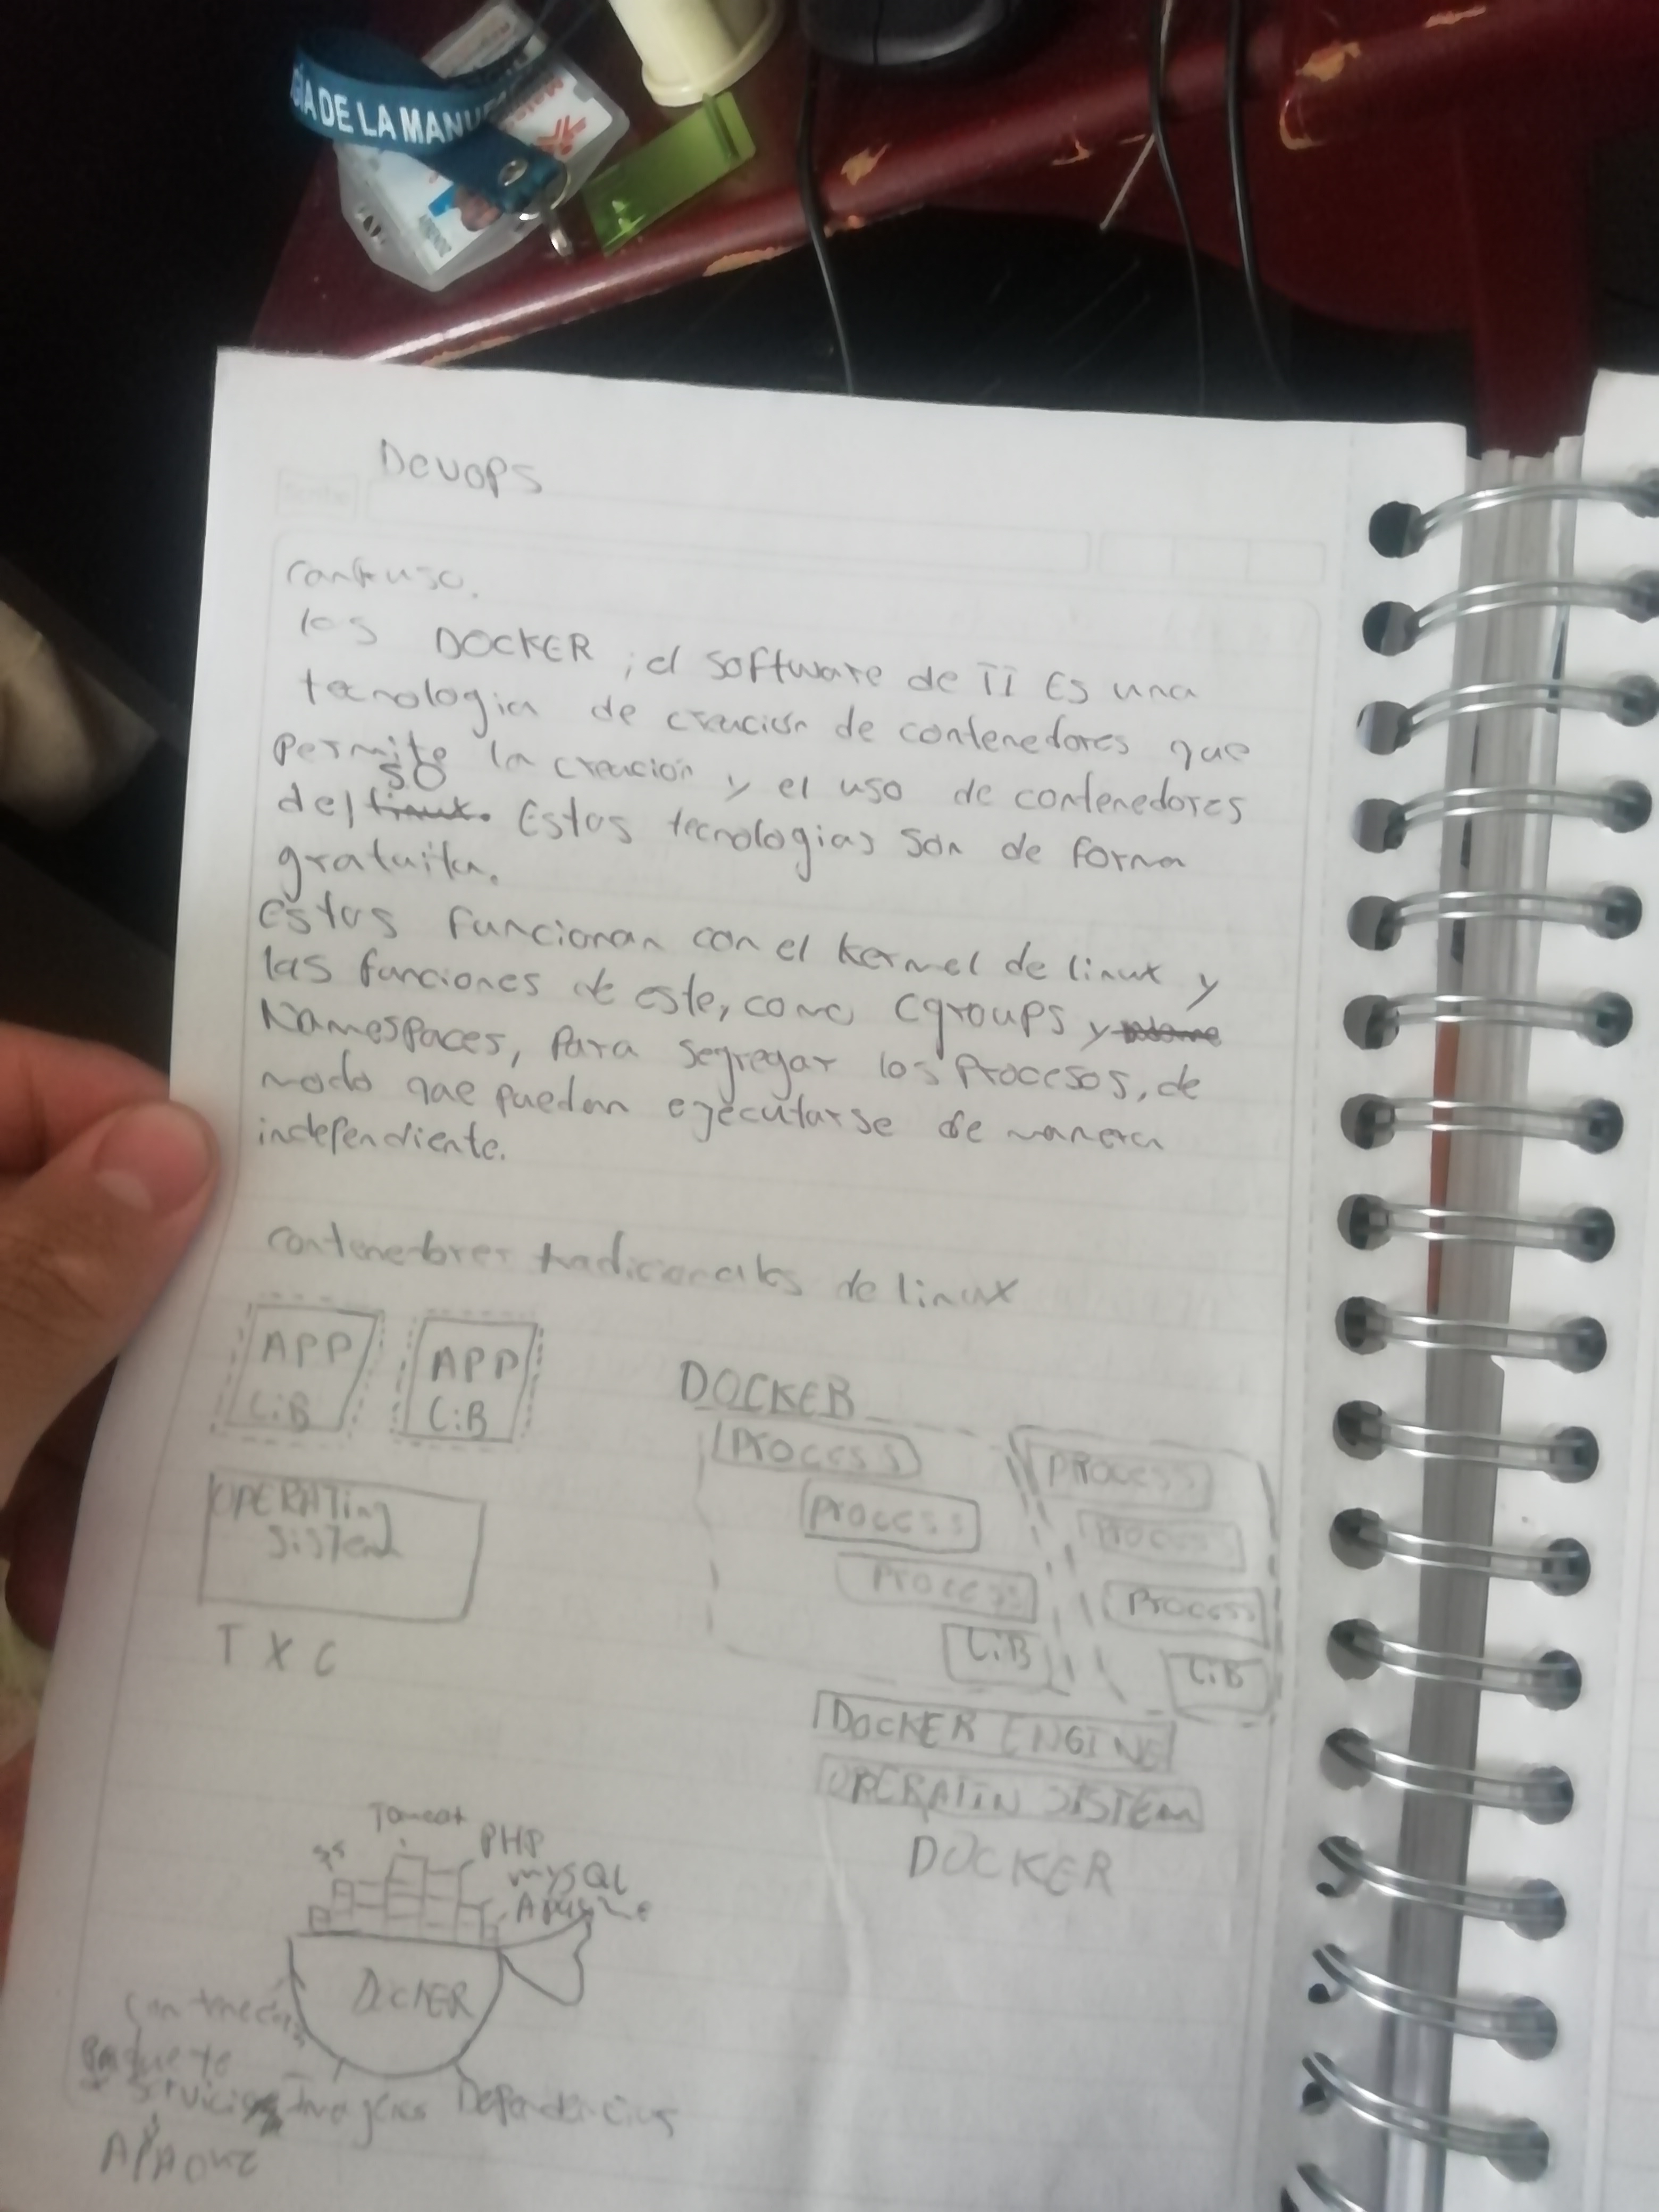 GIA DE LA MANU
Devops
confuso.
los DOCKER, el software de TI Es una
tecnologia de creación de contenedores que
permite la creación y el uso de contenedores
SO
del linux. Estas tecnologias son de forma
gratuita.
Estas funcionan con el kernel de linux y
las funciones de este, como Cgroups y
Namespaces, para segregar los procesos, de
modo que puedan ejecutarse de manera
independiente.
contenebres tradicionales de linux
APP
LiB
APP
LiB
OPERATing
SiSTEM
T X C
DOCKER
Process
Process
Process
LiB
PROCESS
Process
Process
LiB
DOCKER ENGINE
OPERATIN SISTEM
DOCKER
Tomcat
PHP
mySQL
Apache
DOCKER
Contenedor
Paquete
Servicios
Imagenes Dependencias